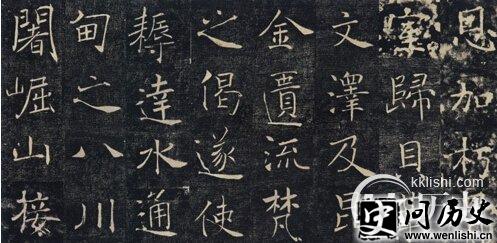 恩加朽
室歸貝
文澤及昆
金匱流梵
之偈遂使
耨達水通
甸之八川
闍崛山接
kklishi.com
史 问历史
www.wenlishi.cn